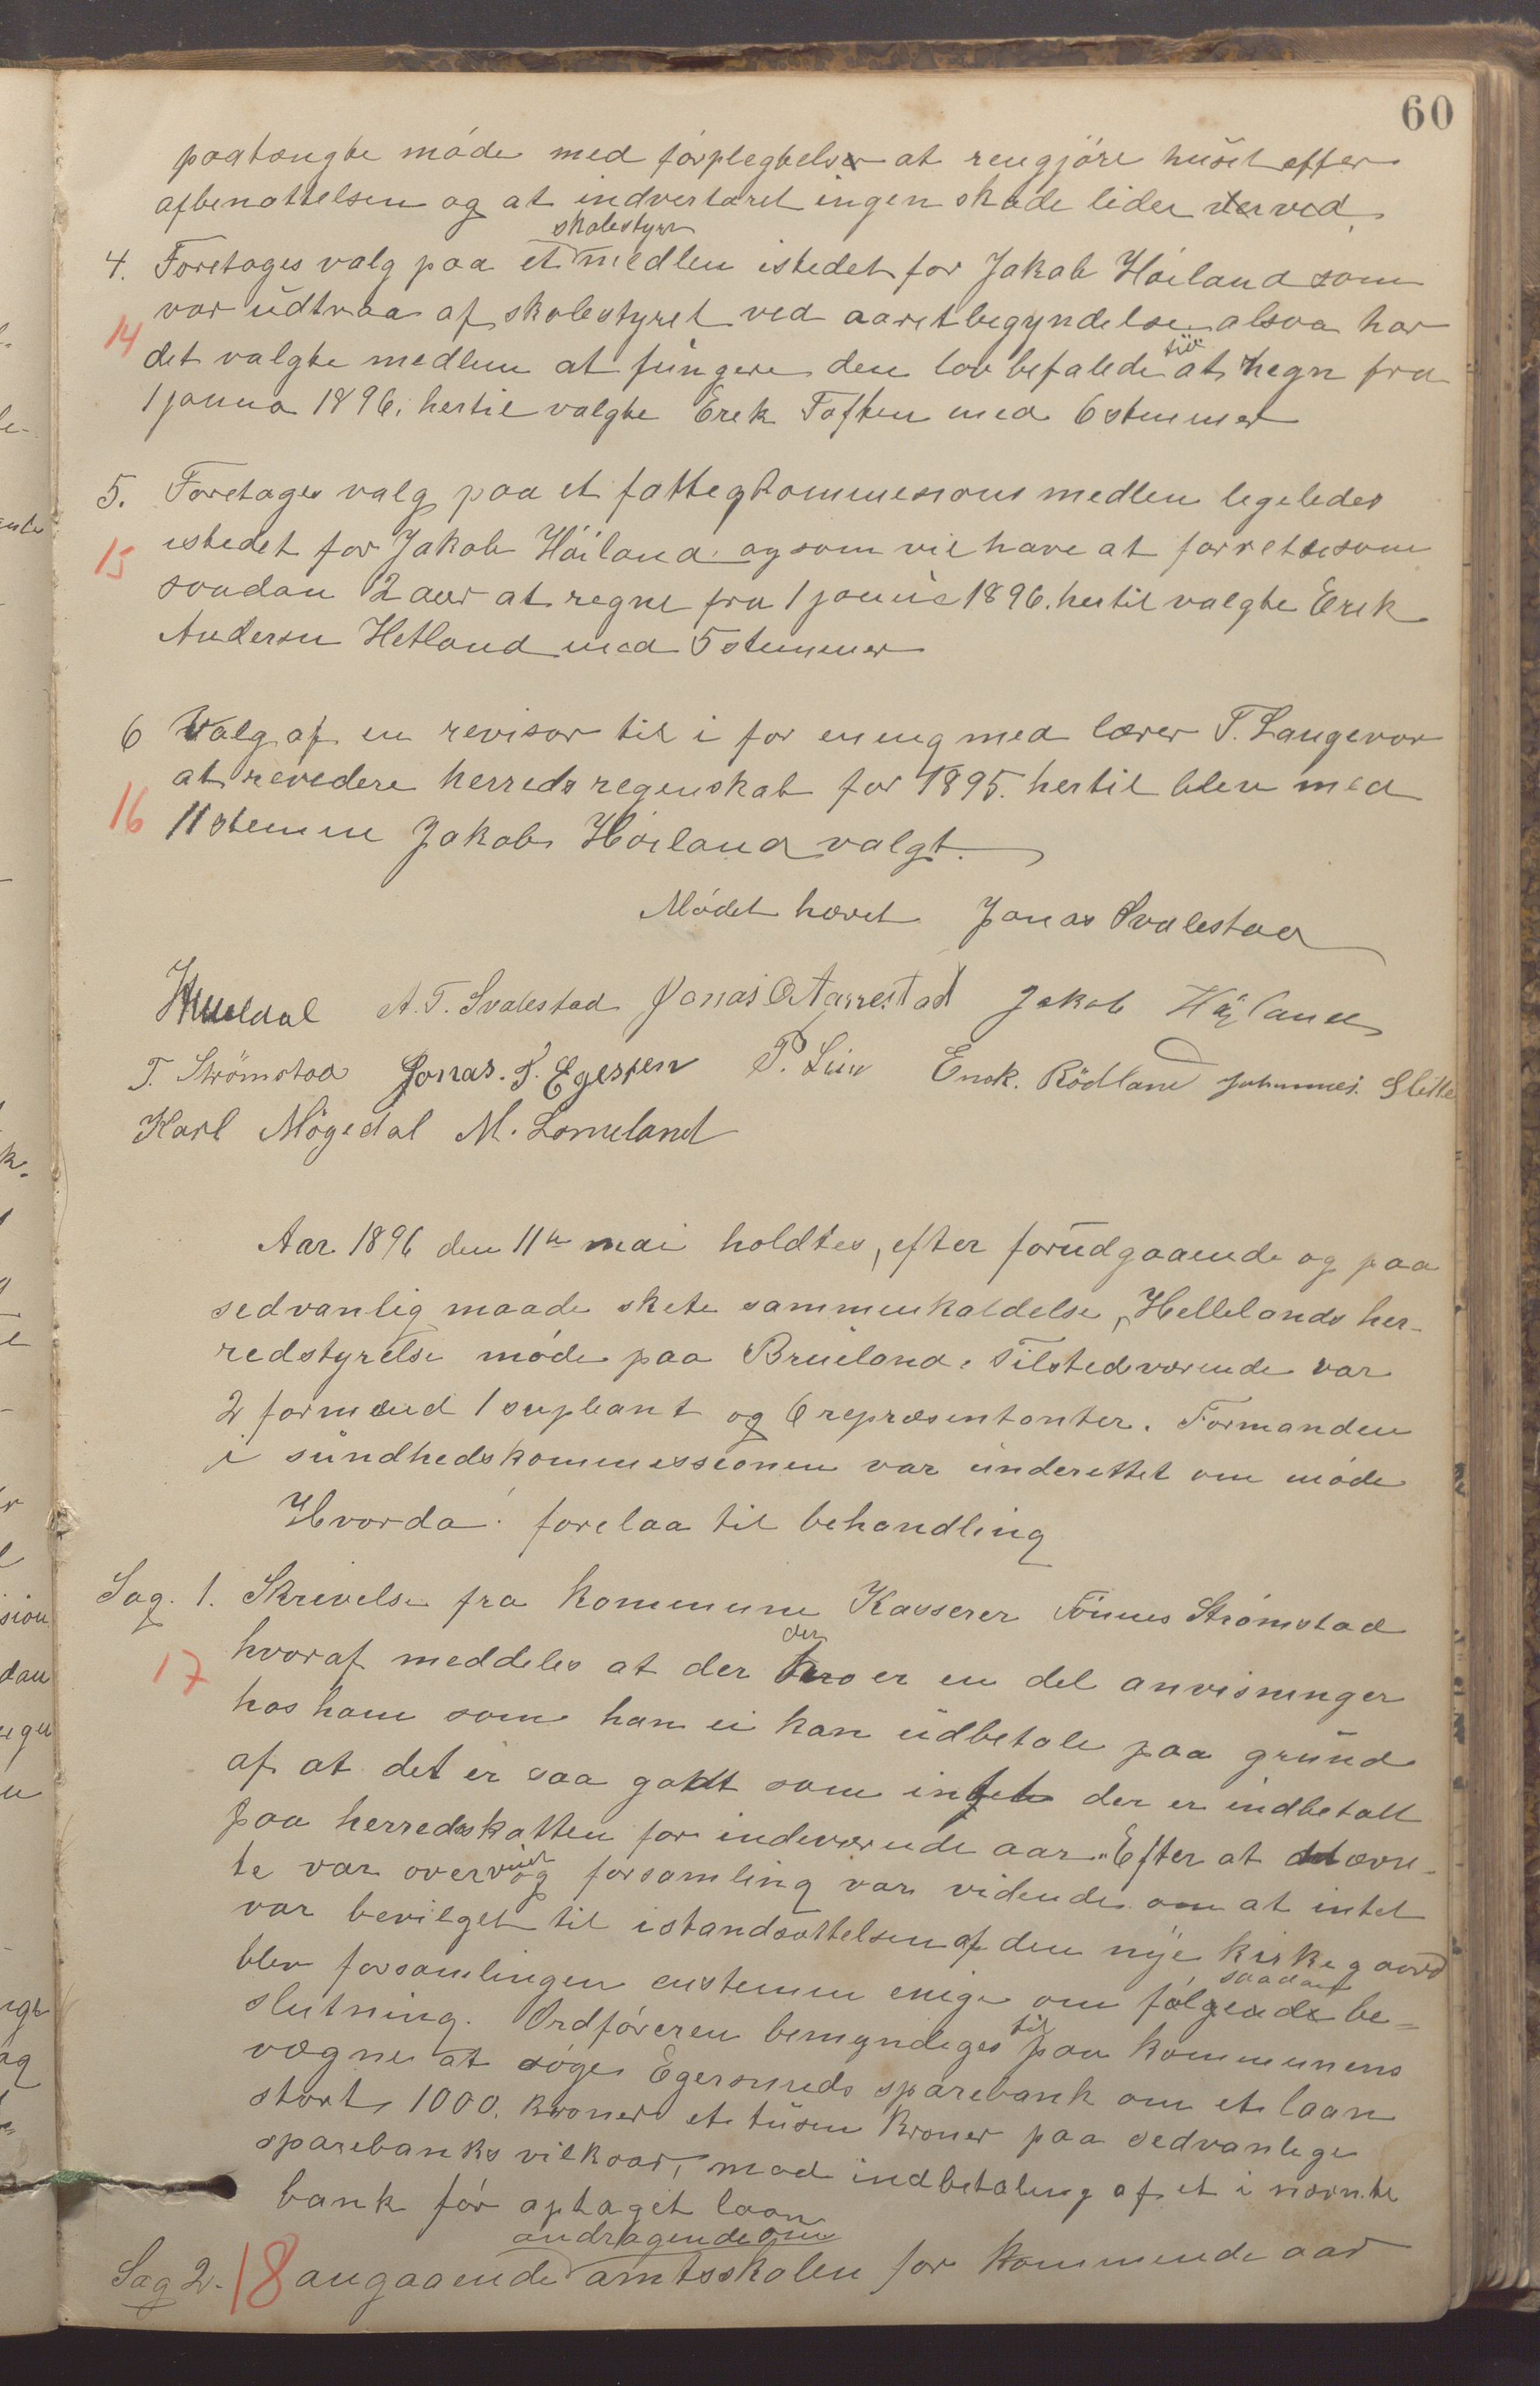 60
paatængte móde med fórplegtelser at rengjöre huset efter
afbenøttelsen og at indvertaret ingen skade lider derved
skolestyre
4. Foretages valg paa et medlem istedet for Jakob Hóiland som
var udtraa af skolestyret ved aaretbegyndelse alsaa har
14
til
det valgte medlem at fungere den lov befalede at regn fra
1 janua 1896. hertil valgte Erek Toften med 6 stemmer
5. Foretages valg paa et fattegkommesions medlem legeledes
15
istedet for Jakob Hóiland og som vil have at forrette som
saadan 2 aar at regne fra 1 janua 1896. hertil valgte Erek
Andersen Hetland med 5 stemmer
6 Valg af en revisor til i for eneng med lærer T. Langevor
at revedere herreds regenskab for 1895. hertil blev med
16
11 stemme Jakob Hóiland valgt.
Módet hævet Jonas Svalestad
A. T. Svalestad Jonas O Aarrestad Jakob Höiland
T. Strömstad Jonas. T. Egessen P. Lien Enok. Rödland Johannes. Slette
Karl Mögedal M. Lomeland
Aar 1896 den 11te mai holdtes, efter forudgaaende og paa
sedvanlig maade skete sammenkaldelse, Hellelands her-
redstyrelse móde paa Brueland. Tilstedeværende var
2 formænd 1 supleant og 6 repræsentanter. Formanden
i sundhedskommessionen var underettet om móde
Hvorda forelaa til behandling
Sag. 1. Skrivelse fra Kommune Kasserer Tönnes Strómstad
der
hvoraf meddeles at der hro er en del anvisninger
17
hos ham som han ei kan udbetale paa grund
af at det er saa godt som intet der er indbetalt
paa herredsskatten for indeværende aar. Efter at dette
var overveiet og forsamling var vidende om at intet
var bevilget til istandsættelsen af den nye kirkegaard
saadan
blev forsamlingen enstemm enige om fólgende be-
til
slutning. Ordfóreren bemyndiges paa kommunens
vægne at sóge Egersunds sparebank om et laan
stort 1000. kroner et tusen kroner paa sedvanlege
sparebanks vilkaar, mod indbetaling af et i nævnte
bank fór optaget laan
andragende om
Sag 2. 18 angaaende amtsskolen for kommende aar